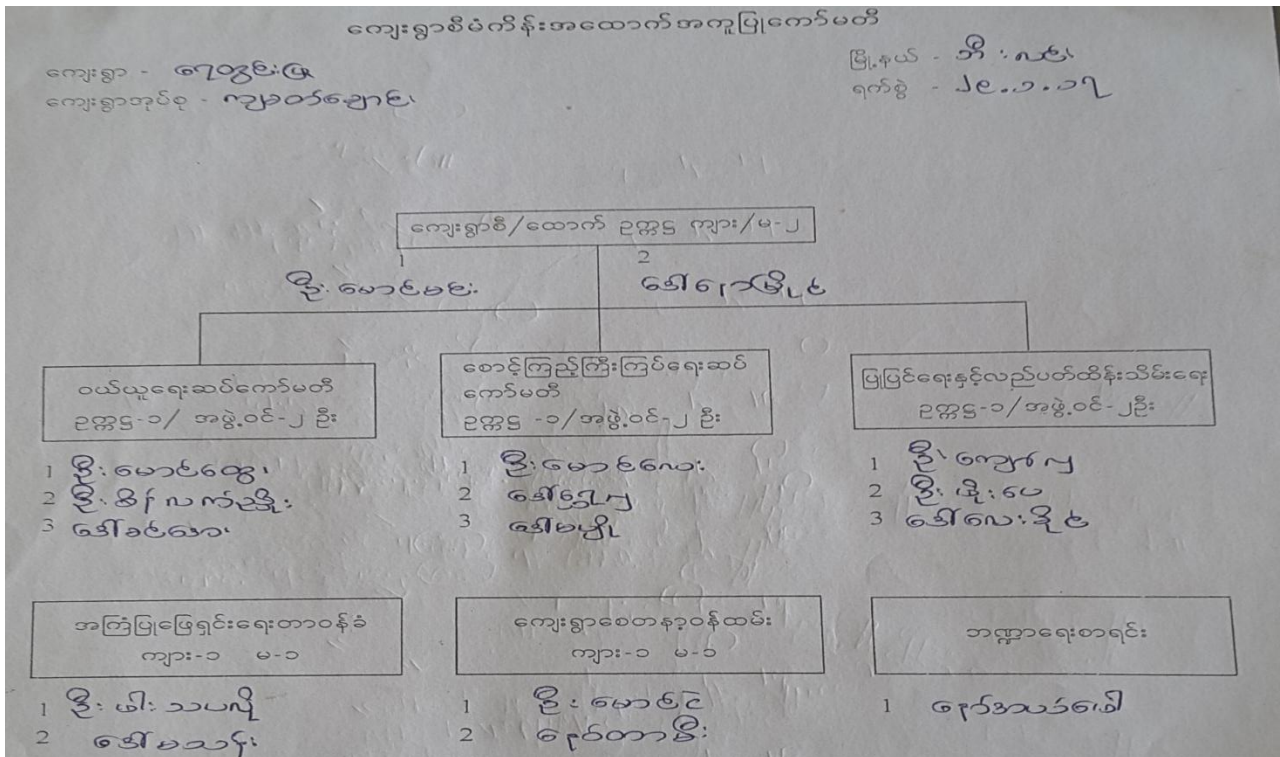 ကျေးရွာစီမံကိန်းအထောက်အကူပြုကော်မတီ
ကျေးရွာ - ရေတွင်းဖြူ
မြို့နယ် - ဘီးလင်း
ကျေးရွာအုပ်စု - ကျခတ်ချောင်း
ရက်စွဲ - ၂၉.၁.၁၇
ကျေးရွာစီ/ထောက် ဥက္ကဋ္ဌ ကျား/မ-၂
1 2
ဦးမောင်မင်း ဒေါ်
ဝယ်ယူရေးဆပ်ကော်မတီ
ဥက္ကဋ္ဌ-၁/ အဖွဲ့ဝင်-၂ ဦး
1 ဦးမောင်ထွေး
2 ဦးစိန်
3 ဒေါ်ခင်အေး
စောင့်ကြည့်ကြီးကြပ်ရေးဆပ်
ကော်မတီ
ဥက္ကဋ္ဌ -၁/အဖွဲ့ဝင်-၂ ဦး
1 ဦးမောင်လေး
2 ဒေါ်
3 ဒေါ်မမျိုး
ပြုပြင်ရေးနှင့်လည်ပတ်ထိန်းသိမ်းရေး
ဥက္ကဋ္ဌ-၁/အဖွဲ့ဝင်-၂ဦး
1 ဦးကျော်လှ
2 ဦးဖိုးပေ
3 ဒေါ်လေးခိုင်
အကြံပြုဖြေရှင်းရေးတာဝန်ခံ
ကျား-၁ မ-၁
1 ဦး
2 ဒေါ်မသန်း
ကျေးရွာစေတနာ့ဝန်ထမ်း
ကျား-၁ မ-၁
1 ဦးမောင်ငြိ
2 နော်တာမီး
ဘဏ္ဍာရေးစာရင်း
1 နော်